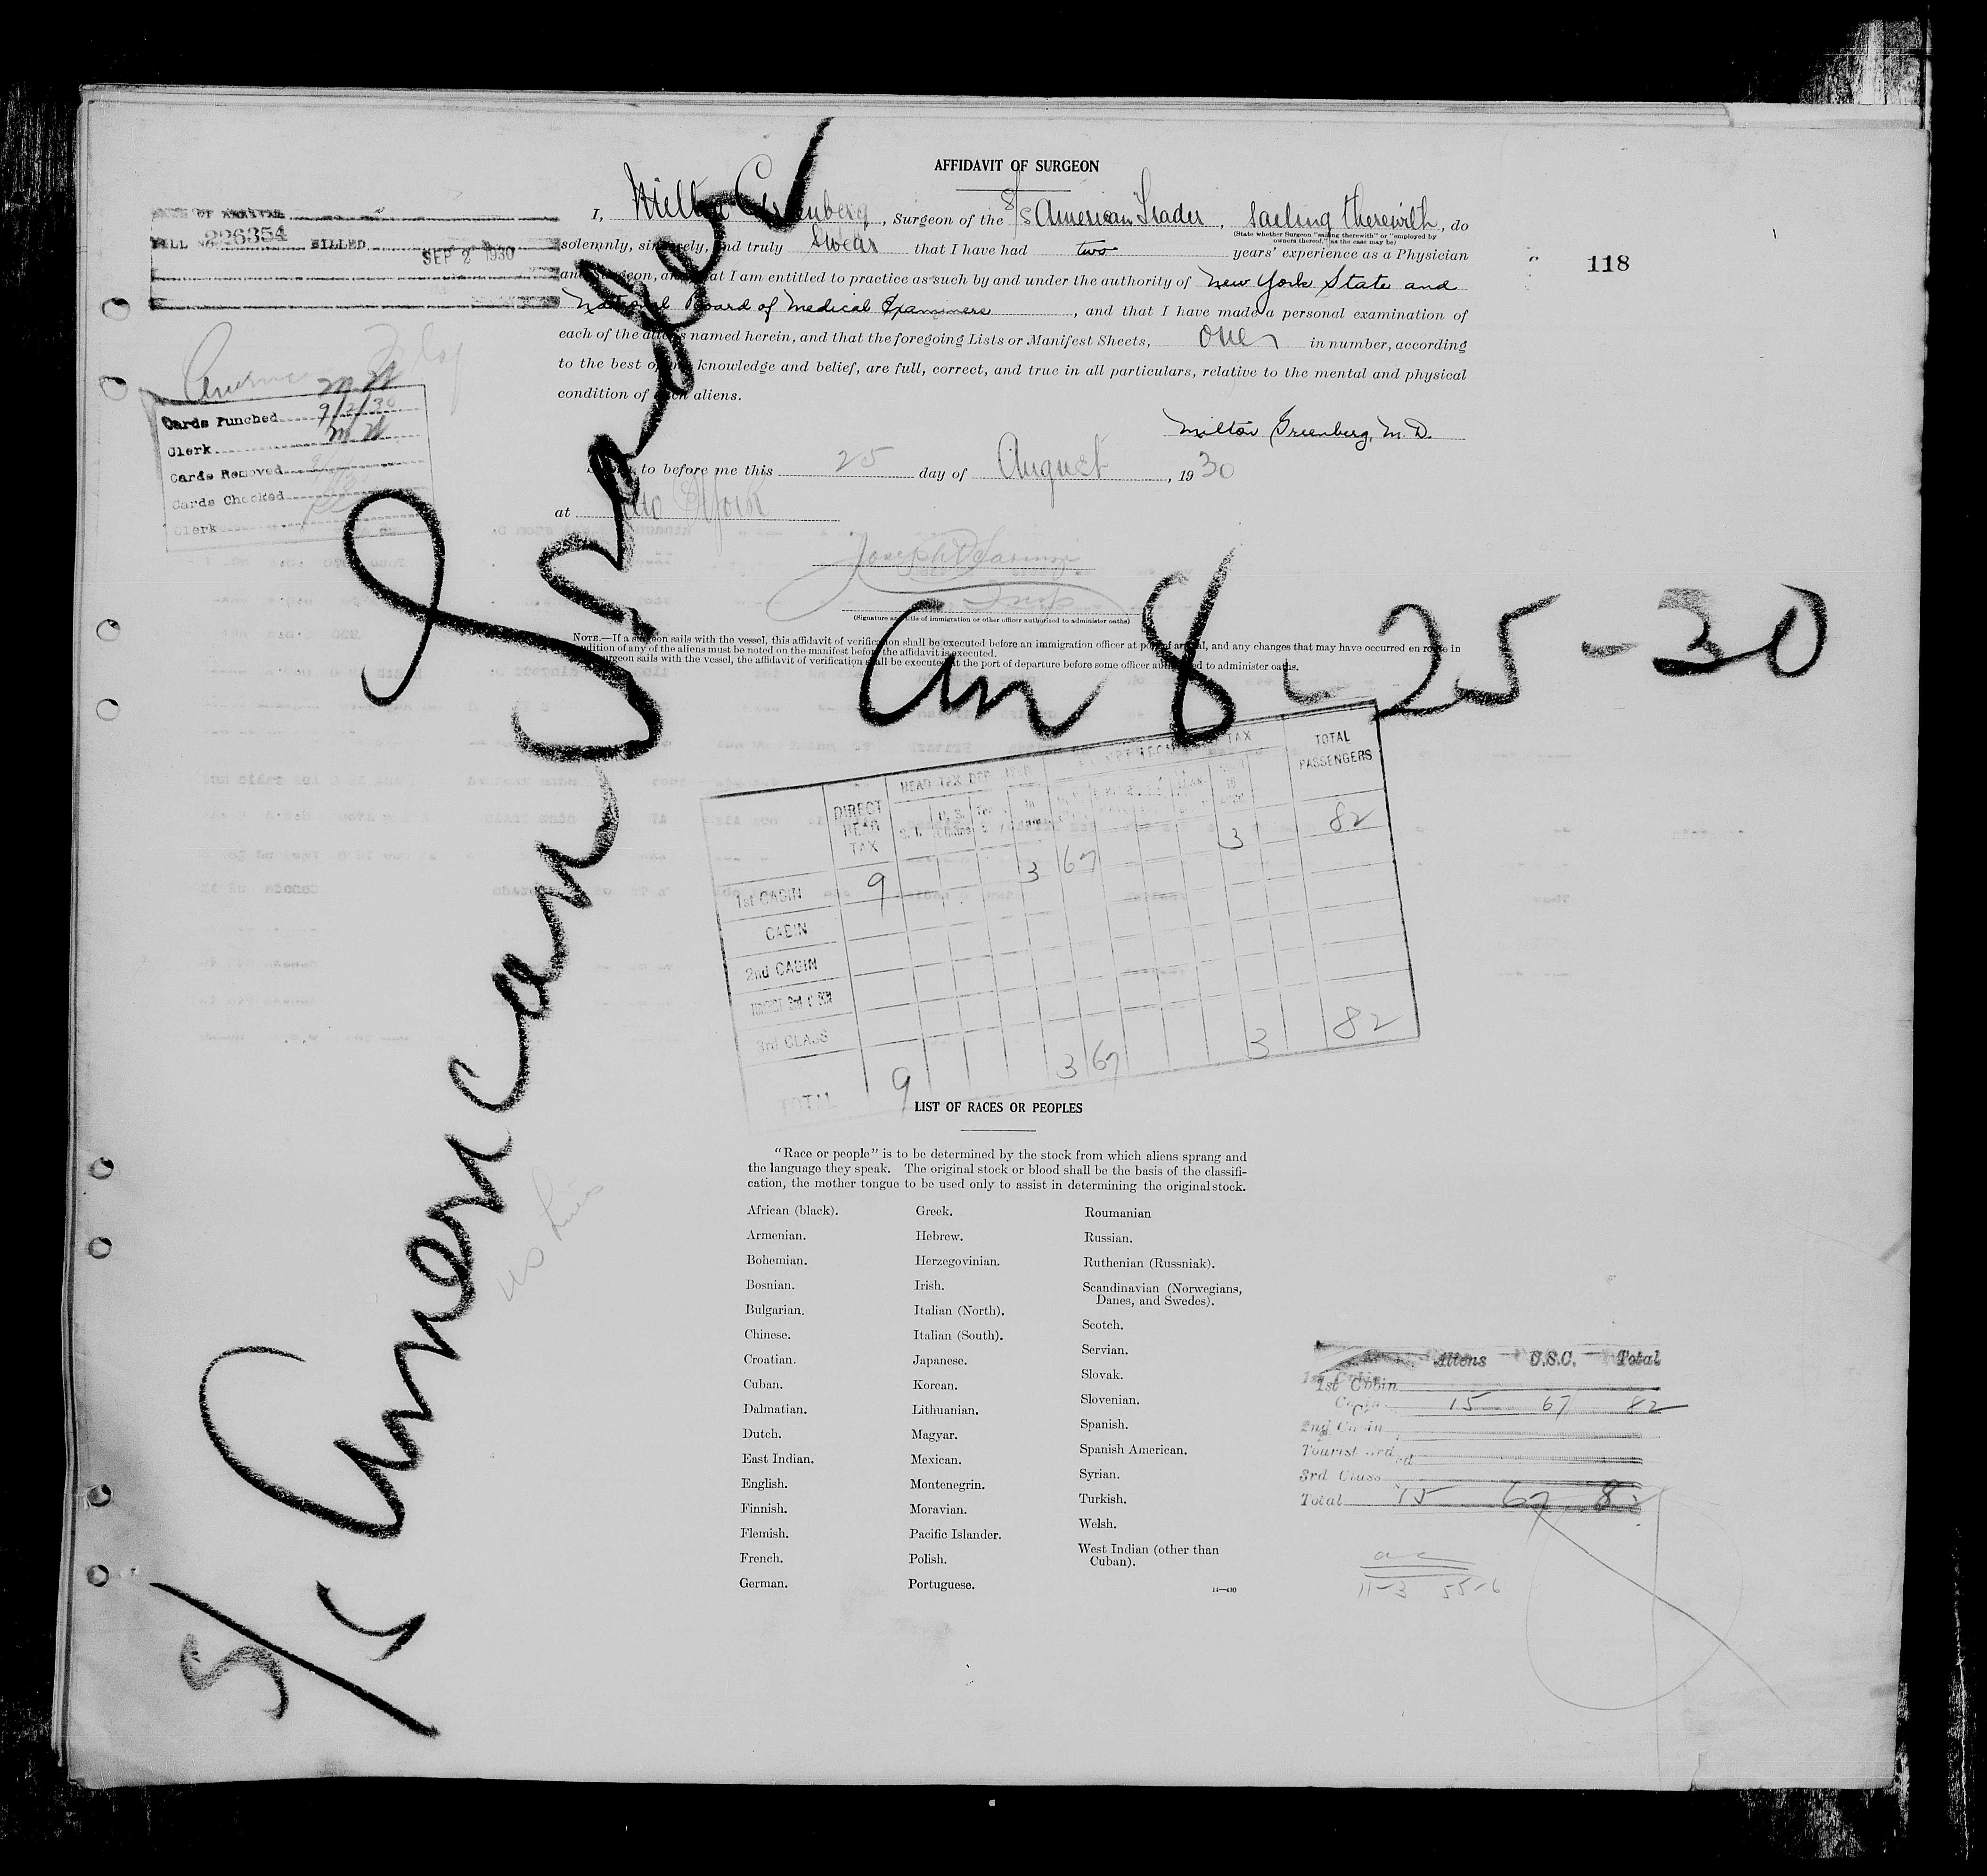 AFFIDAVIT OF SURGEON
I, Milton Greenberg, Surgeon of the S/S American Trader, sailing therewith, do
(State whether Surgeon "sailing therewith" or "employed by
owners thereof," as the case may be)
solemnly, sincerely, and truly swear that I have had two years' experience as a Physician
and Surgeon, and that I am entitled to practice as such by and under the authority of New York State and
National Board of Medical Examiners, and that I have made a personal examination of
each of the aliens named herein, and that the foregoing Lists or Manifest Sheets, one in number, according
to the best of my knowledge and belief, are full, correct, and true in all particulars, relative to the mental and physical
condition of such aliens.
Milton Greenberg, M. D.
Sworn to before me this 25 day of August, 1930
at New York
(Signature and title of immigration or other officer authorized to administer oaths)
118
DATE OF ARRIVAL
BILL 226354 BILLED SEP 2 1930
Cards Punched 9/2/30
Clerk
Cards Removed
Cards Checked
Clerk
NOTE.—If a surgeon sails with the vessel, this affidavit of verification shall be executed before an immigration officer at port of arrival, and any changes that may have occurred en route in
condition of any of the aliens must be noted on the manifest before the affidavit is executed.
surgeon sails with the vessel, the affidavit of verification shall be executed at the port of departure before some officer authorized to administer oaths.
S/S American Trader
Arr 8-25-30
DIRECT HEAD TAX
HEAD TAX
TAX
TOTAL PASSENGERS
1st CABIN 9 3 67 3 82
CABIN
2nd CABIN
TOURIST 3rd
3rd CLASS
TOTAL 9 3 67 3 82
LIST OF RACES OR PEOPLES
"Race or people" is to be determined by the stock from which aliens sprang and
the language they speak. The original stock or blood shall be the basis of the classifi-
cation, the mother tongue to be used only to assist in determining the original stock.
African (black).
Armenian.
Bohemian.
Bosnian.
Bulgarian.
Chinese.
Croatian.
Cuban.
Dalmatian.
Dutch.
East Indian.
English.
Finnish.
Flemish.
French.
German.
Greek.
Hebrew.
Herzegovinian.
Irish.
Italian (North).
Italian (South).
Japanese.
Korean.
Lithuanian.
Magyar.
Mexican.
Montenegrin.
Moravian.
Pacific Islander.
Polish.
Portuguese.
Roumanian
Russian.
Ruthenian (Russniak).
Scandinavian (Norwegians,
Danes, and Swedes).
Scotch.
Servian.
Slovak.
Slovenian.
Spanish.
Spanish American.
Syrian.
Turkish.
Welsh.
West Indian (other than
Cuban).
14—430
Aliens U.S.C. Total
1st Cabin
Cabin 15 67 82
2nd Cabin
Tourist 3rd
3rd Class
Total 15 67 82
11-3 55-6